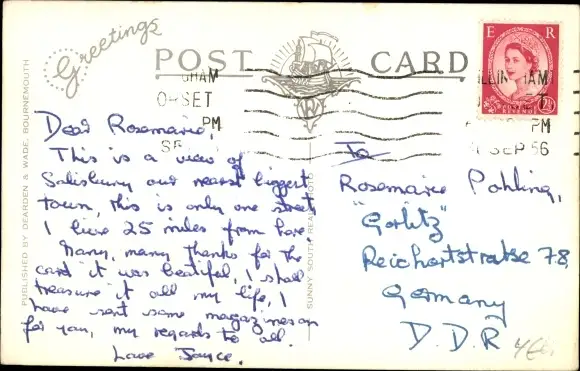 Greetings
POST CARD
E R
GHAM
ILLINGHAM
ORSET
PM
PM
SEP 56
PUBLISHED BY DEARDEN & WADE, BOURNEMOUTH
SUNNY SOUTH REAL PHOTO
Dear Rosemarie,
This is a view of
Salisbury our nearest biggest
town, this is only one street,
I live 25 miles from here.
Many, many thanks for the
card it was beatiful, I shall
treasure it all my life, I
have sent some magazines on
for you, my regards to all.
Love Joyce.
To
Rosemarie Pohling,
"Gorlitz"
Reichertstratse 78,
Germany
D.D.R